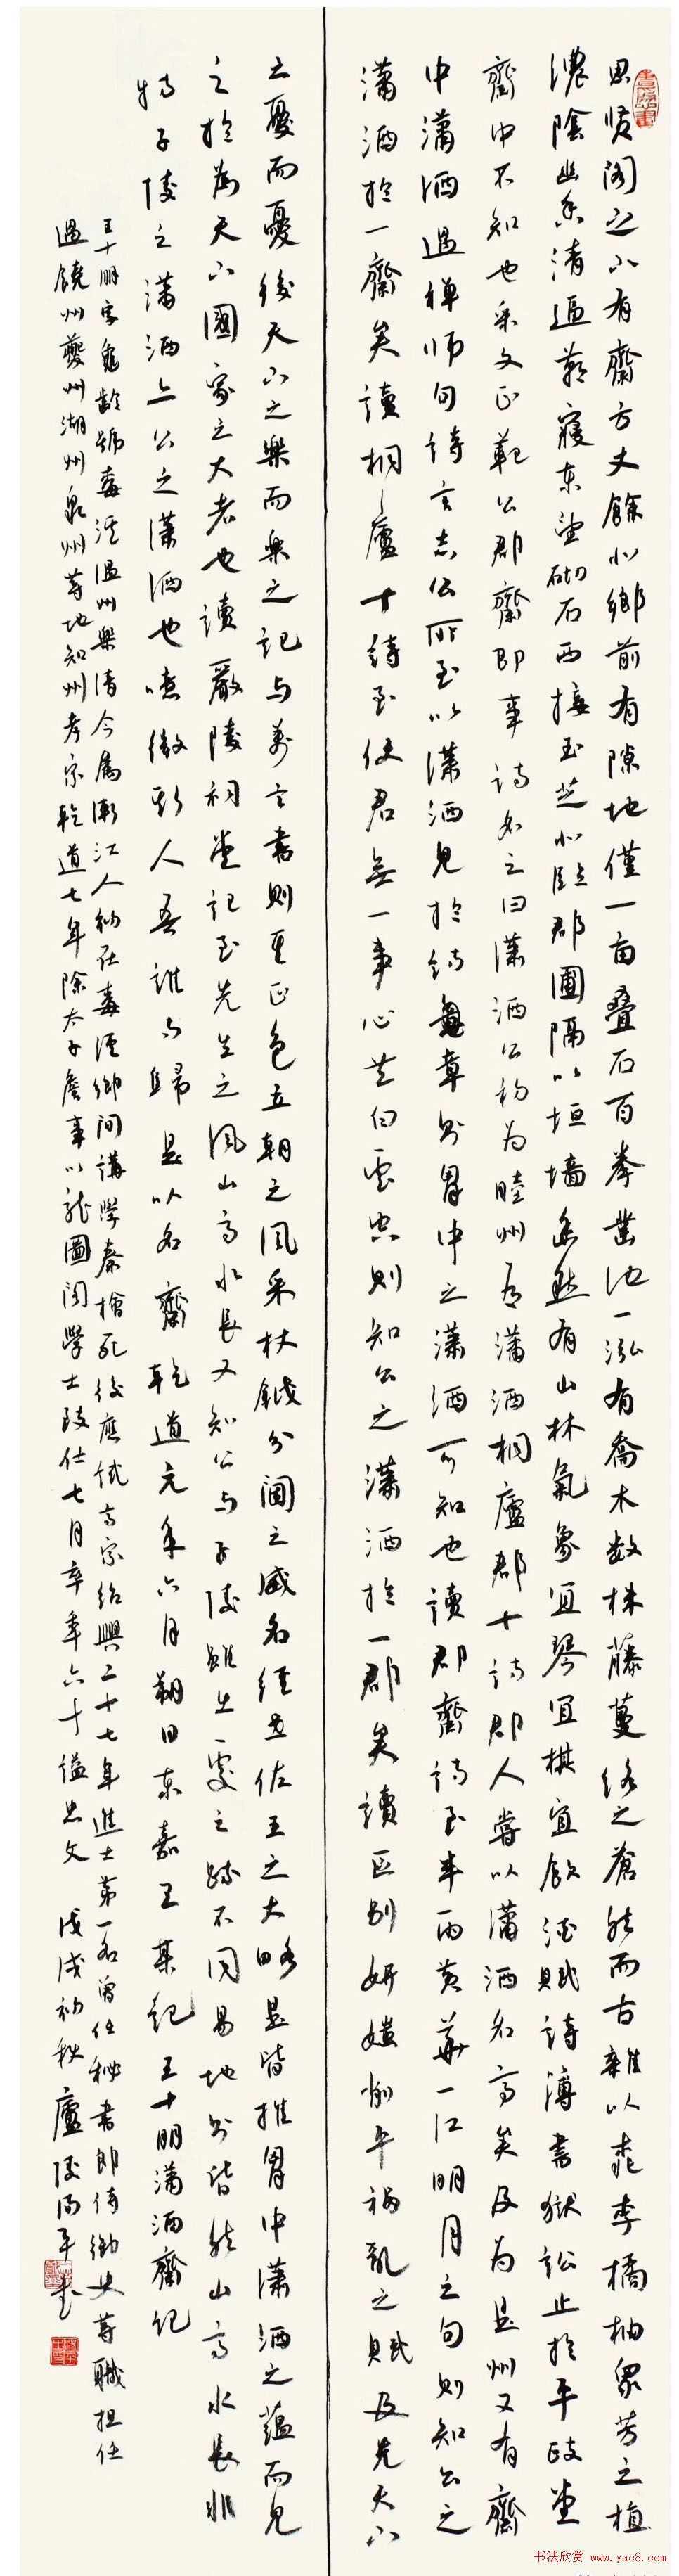 思贤阁之下有齋方丈餘北鄉前有隙地僅一亩叠石百拳凿池一泓有喬木数株藤蔓络之蒼然而古雜以桃李橘柚众芳之植
濃陰幽香清逼燕寢東望砌石西接玉芝北臨郡圃隔以垣墙悠然有山林氣象宜琴宜棋宜飲酒賦詩薄書獄訟止於平政堂
齋中不知也采文正範公郡齋即事诗名之曰潇洒公初为睦州有潇洒桐廬郡十诗郡人嘗以潇洒名亭矣及为是州又有齋
中潇洒過禅师句詩言志公所至以潇洒見於詩章则胃中之潇洒可知也讀郡齋诗至半雨黄華一江明月之句則知公之
潇洒於一齋矣讀桐廬十詩至使君無一事心共白雲空則知公之潇洒於一郡矣讀区别妍媸削平禍亂之賦及先天下
之憂而憂後天下之樂而樂之記与萬言書則其正色立朝之風采杖鉞分阃之威名經世佐王之大略是皆推胃中潇洒之蕴而見
之於为天下國家之大者也讀嚴陵祠堂記至先生之風山高水長又知公与子陵雖出處之跡不同易地则皆然山高水長非
特子陵之潇洒亦公之潇洒也噫微斯人吾誰与歸是以名齋乾道元年六月朔日東嘉王某記王十朋潇洒齋记
王十朋字龜齡號梅溪温州樂清今属浙江人初在梅溪鄉间講學秦檜死後應试高宗绍興二十七年進士第一名曾任秘書郎侍御史等職担任
過饒州夔州湖州泉州等地知州孝宗乾道七年除太子詹事以龙圖阁學士致仕七月卒年六十謚忠文 戊戌初秋廬陵
书法欣赏 www.yac8.com